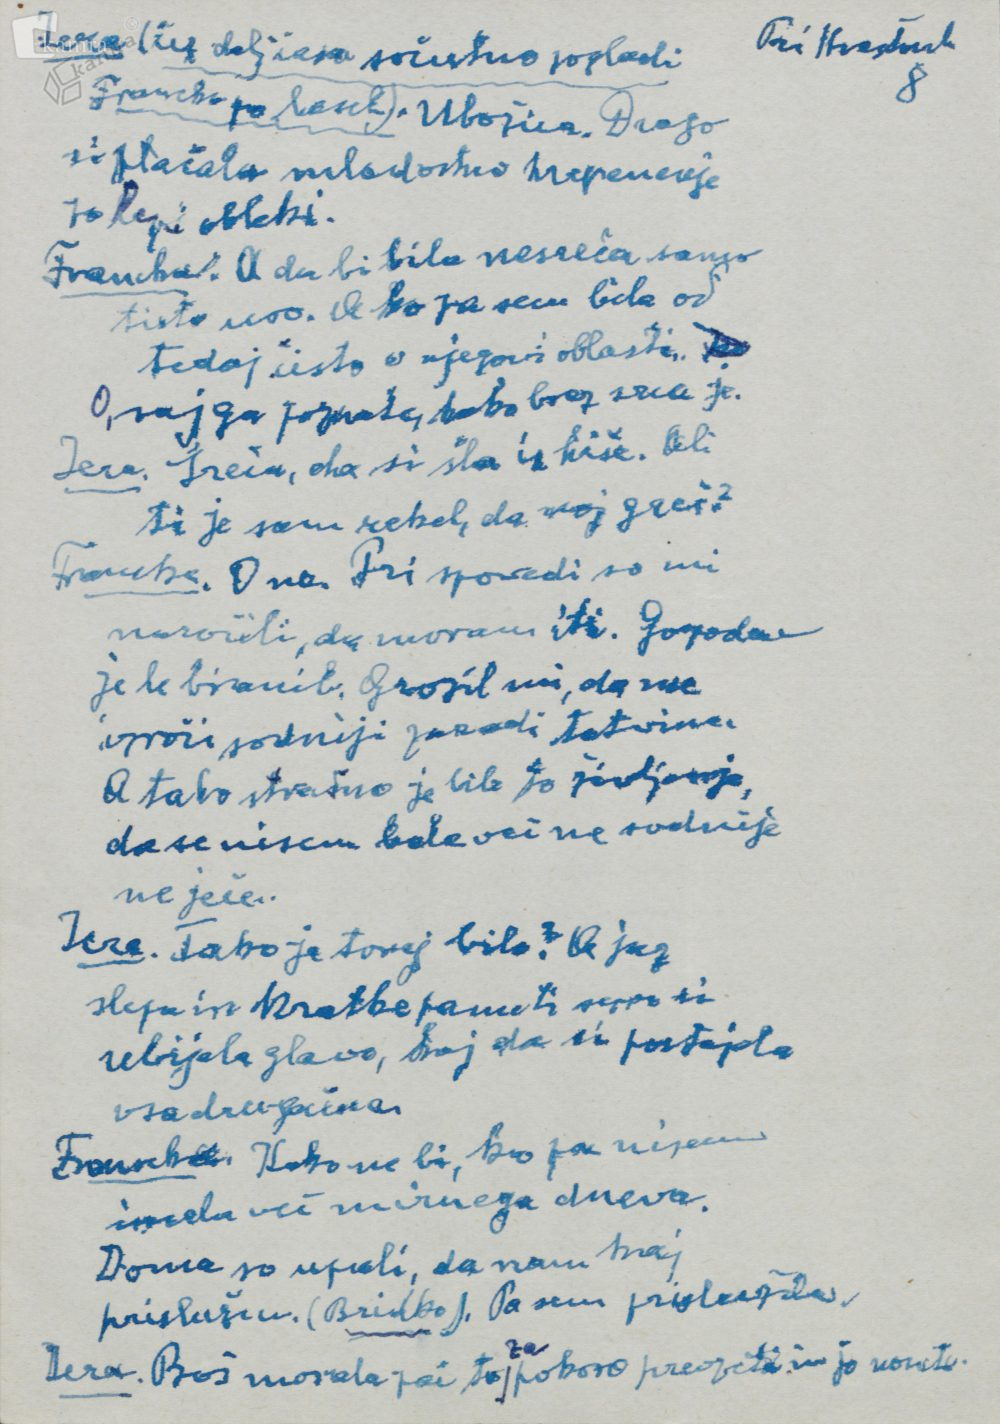 Pri Hrastnik
8
Jera (čez dalj časa sočutno pogladi
Francko po laseh). Ubožica. Drago
si plačala mladostno hrepenenje
po lepi obleki.
Francka. A da bi bila nesreča samo
tisto uro. A ko pa sem bila od
tedaj čisto v njegovi oblasti.
O, saj ga poznate, kako brez srca je.
Jera. Sreča, da si šla iz hiše. Ali
ti je sam rekel, da naj greš?
Francka. O ne. Pri spovedi so mi
naročili, da moram iti. Gospodar
je le branil. Grozil mi, da me
izroči sodniji zaradi tatvine.
A tako strašno je bilo to življenje,
da se nisem bala več ne sodnije
ne ječe.
Jera. Tako je torej bilo? A jaz
slepa in kratke pameti sem si
ubijala glavo, kaj da si postajala
vsa drugačna.
Francka. Kako ne bi, ko pa nisem
imela več mirnega dneva.
Doma so upali, da nam kaj
prislužim. (Bridko). Pa sem prislužila.
Jera. Boš morala pač to za pokoro prevzeti in jo nositi.
kamra
kamra